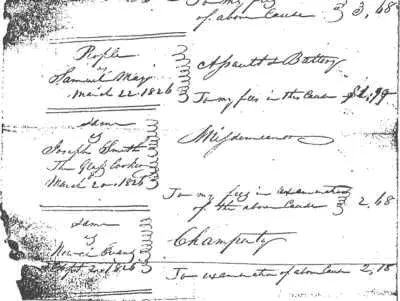 To my fees in
of above Cause 3,68
People
vs
Samuel May
March 22 1826
Assault & Battery
To my fees in the Cause
Same
vs
Joseph Smith
The Glass looker
March 20, 1826
Misdemeanor
To my fees in examination
of the above Cause 2,68
Same
vs
1826
Champerty
To examination of above Cause 2,18